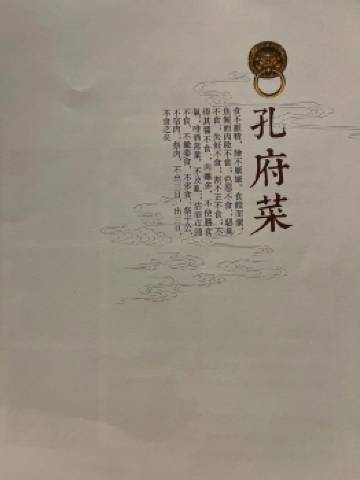 孔府菜
食不厭精，膾不厭細。食饐而餲，
魚餒而肉敗不食，色惡不食，惡臭
不食，失飪不食，割不正不食，不
得其醬不食，肉雖多，不使勝食
氣，唯酒無量，不及亂，沽酒市脯
不食，不撤姜食，不多食，祭于公，
不宿肉，祭肉，不出三日，出三日，
不食之矣